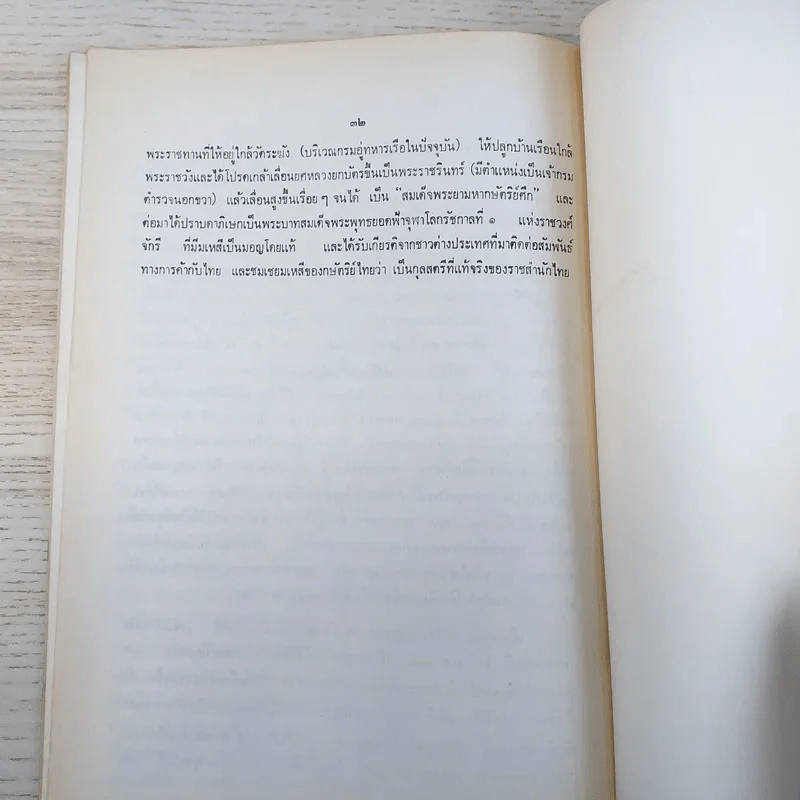 ๓๒
พระราชทานที่ให้อยู่ใกล้วัดระฆัง (บริเวณกรมอู่ทหารเรือในปัจจุบัน) ให้ปลูกบ้านเรือนใกล้
พระราชวังและได้โปรดเกล้าเลื่อนยศหลวงยกบัตรขึ้นเป็นพระราชรินทร์ (มีตำแหน่งเป็นเจ้ากรม
ตำรวจนอกขวา) แล้วเลื่อนสูงขึ้นเรื่อย ๆ จนได้ เป็น “สมเด็จพระยามหากษัตริย์ศึก” และ
ต่อมาได้ปราบดาภิเษกเป็นพระบาทสมเด็จพระพุทธยอดฟ้าจุฬาโลกรัชกาลที่ ๑ แห่งราชวงศ์
จักรี ที่มีมเหสีเป็นมอญโดยแท้ และได้รับเกียรติจากชาวต่างประเทศที่มาติดต่อสัมพันธ์
ทางการค้ากับไทย และชมเชยมเหสีของกษัตริย์ไทยว่า เป็นกุลสตรีที่แท้จริงของราชสำนักไทย